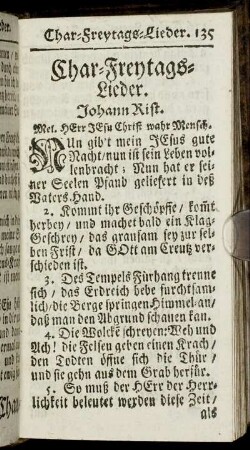 Char-Freytags-Lieder. 135
Char-Freytags-
Lieder.
Johann Rist.
Mel. HErr JEsu Christ wahr Mensch.
NUn gib't mein JEsus gute
Nacht / nun ist sein Leben vol-
lenbracht; Nun hat er sei-
ner Seelen Pfand geliefert in deß
Vaters Hand.
2. Kommt ihr Geschöpffe / kom̃t
herbey / und machet bald ein Klag-
Geschrey / das grausam sey zur sel-
ben Frist / da GOtt am Creutz ver-
schieden ist.
3. Des Tempels Fürhang trenne
sich / das Erdreich bebe furchtsam-
lich / die Berge springen Himmel-an /
daß man den Abgrund schauen kan.
4. Die Wolcke schreyen: Weh und
Ach! die Felsen geben einen Krach /
den Todten öffne sich die Thür /
und sie gehn aus dem Grab herfür.
5. So muß der HErr der Herr-
lichkeit beleutet werden diese Zeit /
als